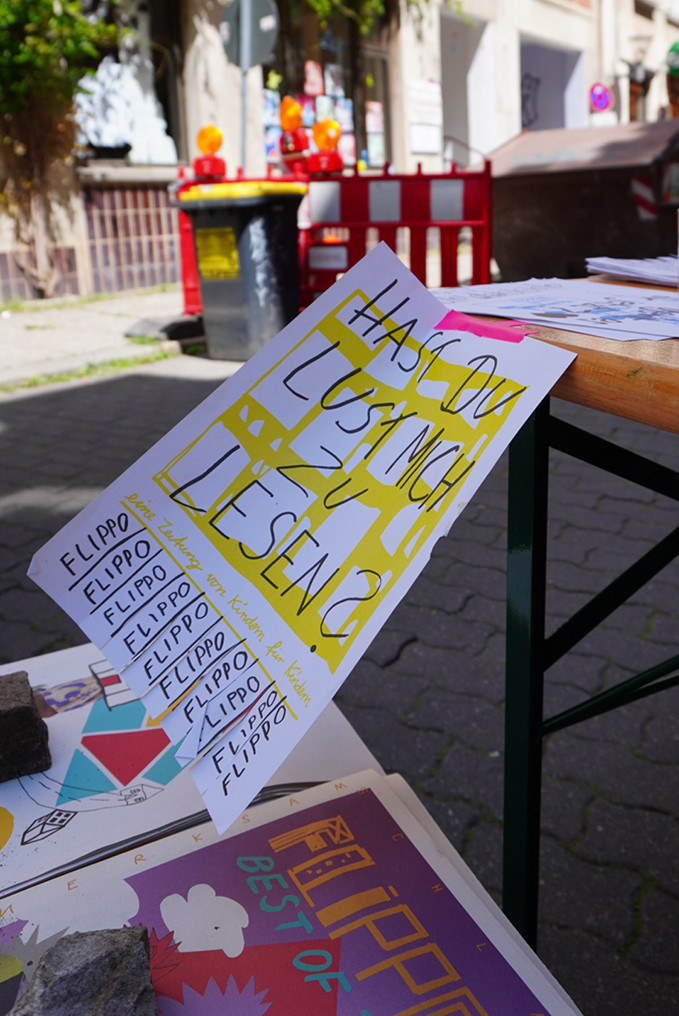 HAST DU
LUST MICH
ZU
LESEN?
eine Zeitung von Kindern für Kinder
FLIPPO
FLIPPO
FLIPPO
FLIPPO
FLIPPO
FLIPPO
FLIPPO
FLIPPO
FLIPPO
FLIPPO
FLIPPO
BEST OF